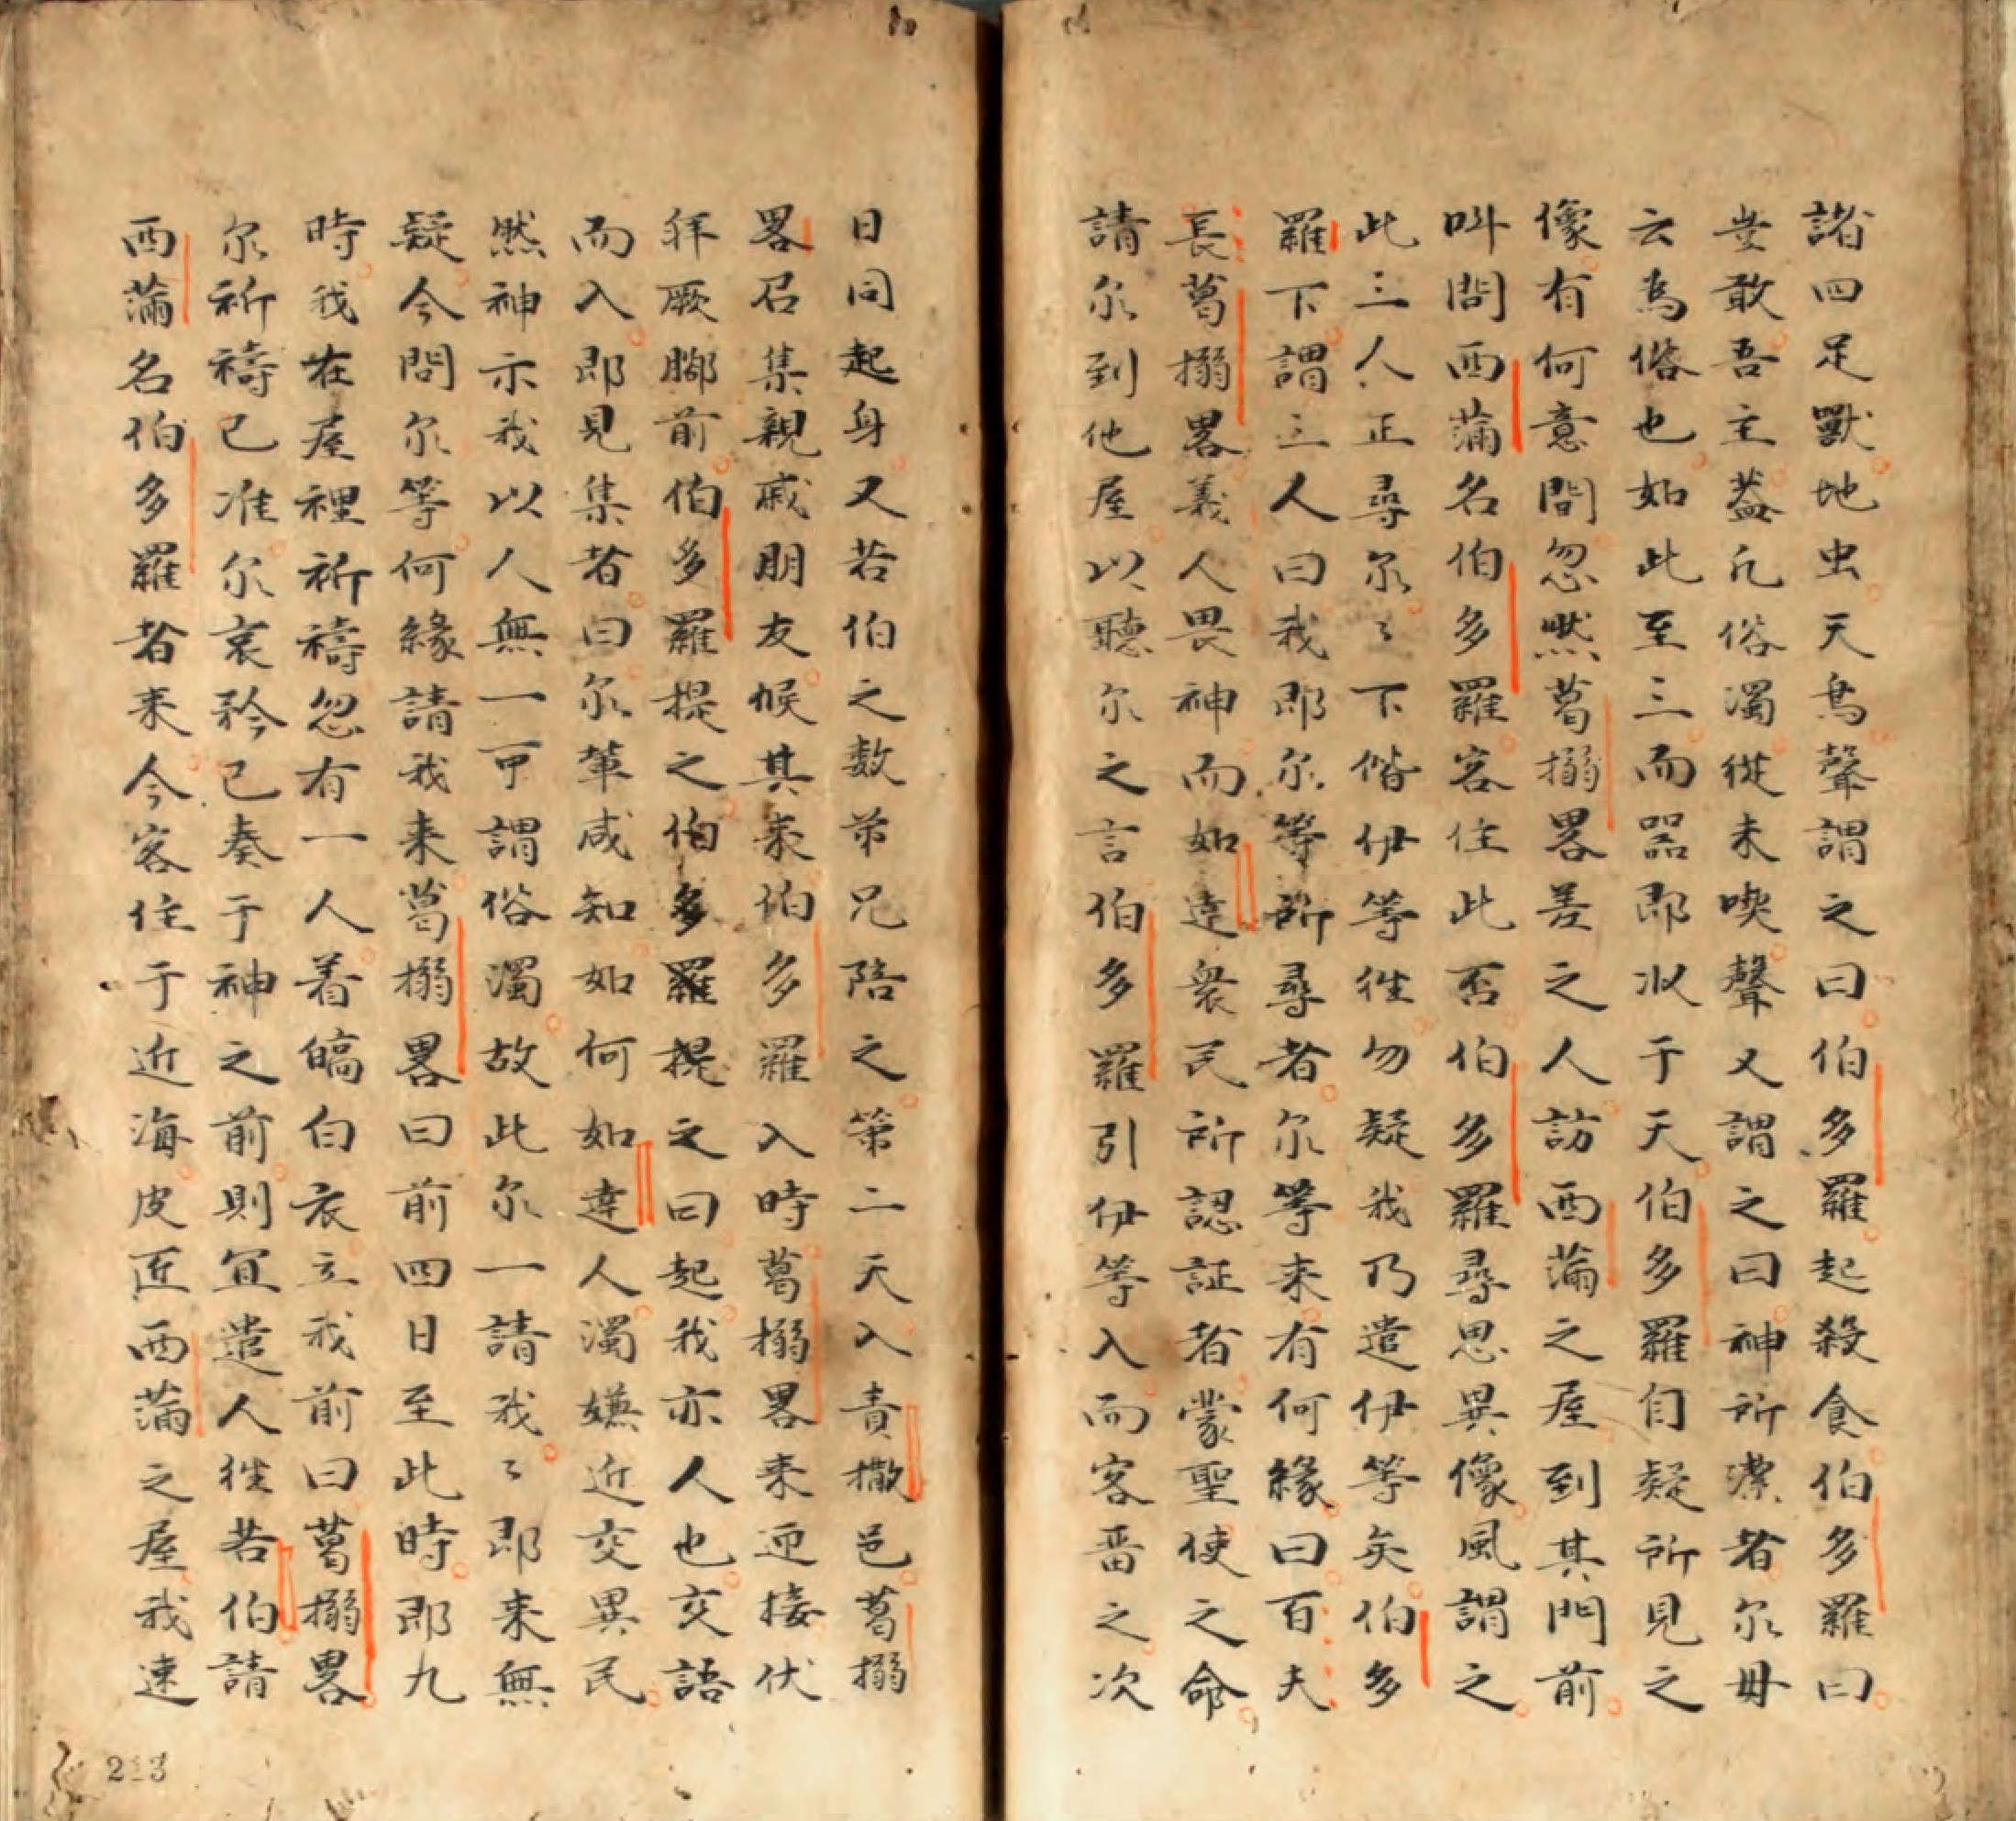 諸四足獸地虫天鳥聲謂之曰伯多羅起殺食伯多羅曰
豈敢吾主蓋凡俗濁從未喫聲又謂之曰神所潔者尔毋
云為俗也如此至三而器即収于天伯多羅自疑所見之
像有何意間忽然葛搦畧差之人訪西滿之屋到其門前
呌問西滿名伯多羅客住此否伯多羅尋思異像風謂之
此三人正尋尔〻下偕伊等徃勿疑我乃遣伊等矣伯多
羅下謂三人曰我即尔等所尋者尔等来有何緣曰百夫
長葛搦畧義人畏神而如達衆民所認証者蒙聖使之命
請尔到他屋以聽尔之言伯多羅引伊等入而客畨之次
日同起身又若伯之数苐兄陪之第二天入責撒邑葛搦
畧召集親戚朋友候其来伯多羅入時葛搦畧来迎接伏
拜厥腳前伯多羅提之伯多羅提之曰起我亦人也交語
而入即見集者曰尔輩咸知如何如達人濁嫌近交異民
然神示我以人無一可謂俗濁故此尔一請我〻即来無
疑今問尔等何緣請我来葛搦畧曰前四日至此時即九
時我在屋裡祈禱忽有一人着皜白衣立我前曰葛搦畧
尔祈禱已准尔哀矜已奏于神之前則宜遣人徃若伯請
西滿名伯多羅者来今客住于近海皮匠西滿之屋我速
213